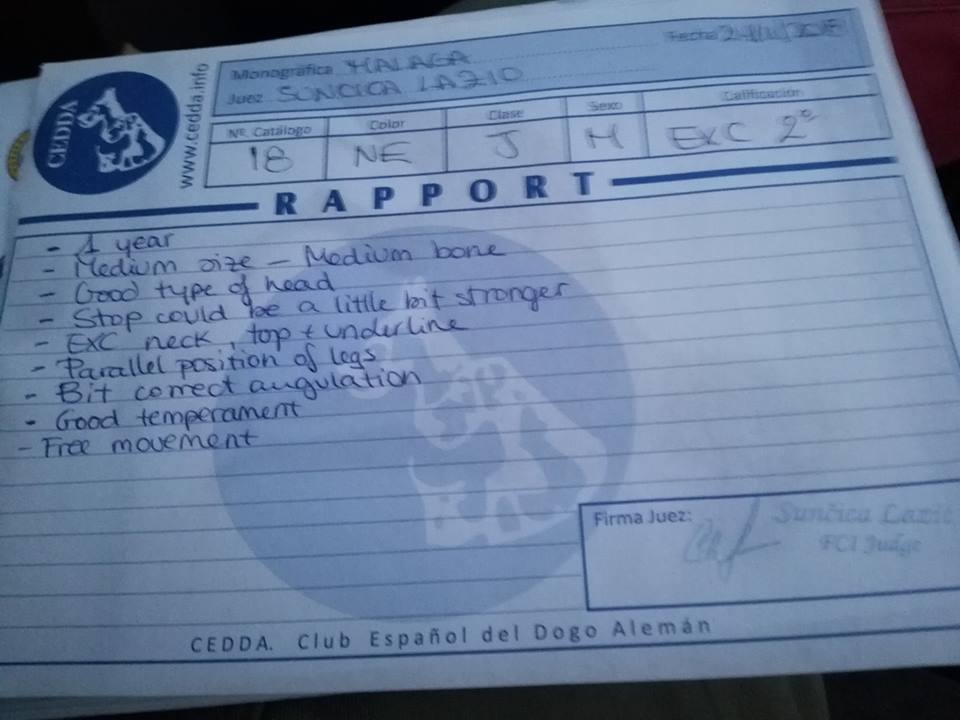 CEDDA
www.cedda.info
Monográfica MALAGA
Fecha
Juez SUNCICA LAZIC
Nº. Catálogo Color Clase Sexo Calificación
18 NE J H EXC 2º
RAPPORT
- 1 year
- Medium size - Medium bone
- Good type of head
- Stop could be a little bit stronger
- EXC neck, top + underline
- Parallel position of legs
- Bit correct angulation
- Good temperament
- Free movement
Firma Juez:
Sunčica Lazić
FCI Judge
CEDDA. Club Español del Dogo Alemán